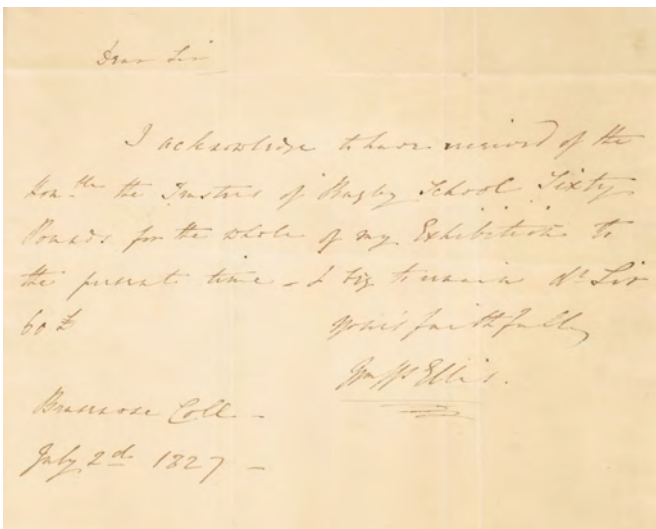 Dear Sir
I acknowledge to have received of the
Hon.ble the Trustees of Rugby School Sixty
Pounds for the whole of my Exhibition to
the present time – I beg to remain dr Sir
60 £ yours faithfully
Wm Ellis.
Brasenose Coll –
July 2d 1827 –